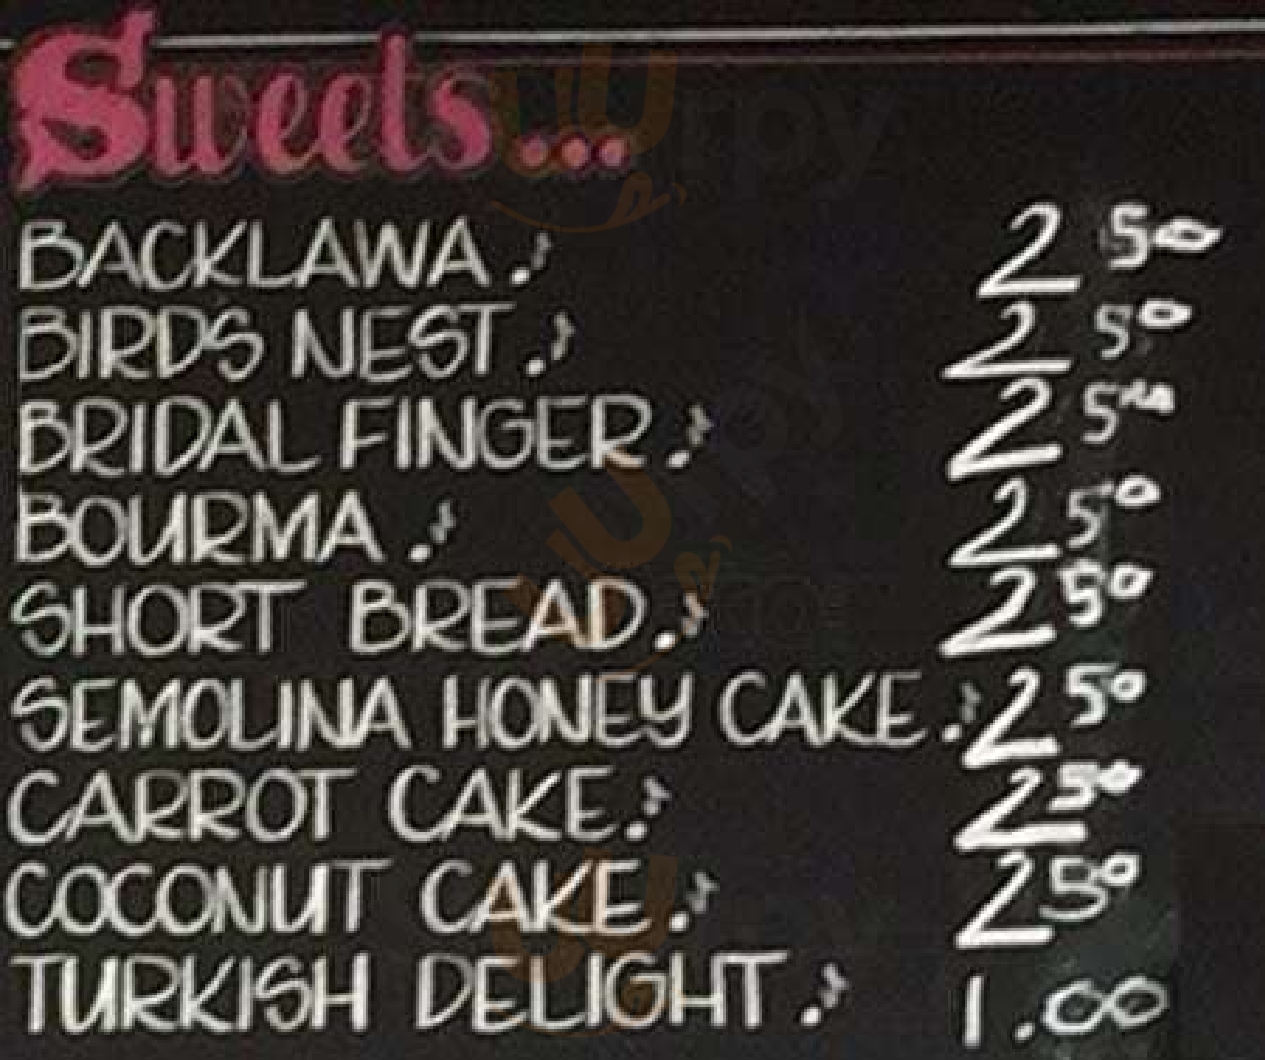 Sweets...
BACKLAWA. 2 50
BIRDS NEST. 2 50
BRIDAL FINGER. 2 50
BOURMA. 2 50
SHORT BREAD. 2 50
SEMOLINA HONEY CAKE. 2 50
CARROT CAKE. 2 50
COCONUT CAKE. 2 50
TURKISH DELIGHT. 1.00